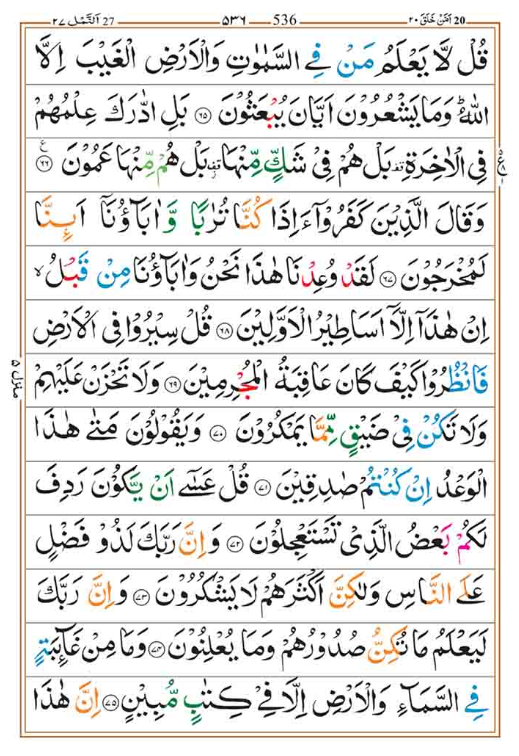 اَمَّنْ خَلَقَ ٢٠ 20 536 ٥٣٦ اَلنَّمْل ٢٧ 27
قُلْ لَّا يَعْلَمُ مَنْ فِي السَّمٰوٰتِ وَالْاَرْضِ الْغَيْبَ اِلَّا
اللّٰهُ ؕ وَمَا يَشْعُرُوْنَ اَيَّانَ يُبْعَثُوْنَ ﴿٦٥﴾ بَلِ ادّٰرَكَ عِلْمُهُمْ
فِي الْاٰخِرَةِ بَلْ هُمْ فِيْ شَكٍّ مِّنْهَا بَلْ هُمْ مِّنْهَا عَمُوْنَ ﴿٦٦﴾
وَقَالَ الَّذِيْنَ كَفَرُوْۤا ءَاِذَا كُنَّا تُرٰبًا وَّاٰبَآؤُنَاۤ اَىِٕنَّا
لَمُخْرَجُوْنَ ﴿٦٧﴾ لَقَدْ وُعِدْنَا هٰذَا نَحْنُ وَاٰبَآؤُنَا مِنْ قَبْلُ ۙ
اِنْ هٰذَاۤ اِلَّاۤ اَسَاطِيْرُ الْاَوَّلِيْنَ ﴿٦٨﴾ قُلْ سِيْرُوْا فِي الْاَرْضِ
فَانْظُرُوْا كَيْفَ كَانَ عَاقِبَةُ الْمُجْرِمِيْنَ ﴿٦٩﴾ وَلَا تَحْزَنْ عَلَيْهِمْ
وَلَا تَكُنْ فِيْ ضَيْقٍ مِّمَّا يَمْكُرُوْنَ ﴿٧٠﴾ وَيَقُوْلُوْنَ مَتٰى هٰذَا
الْوَعْدُ اِنْ كُنْتُمْ صٰدِقِيْنَ ﴿٧١﴾ قُلْ عَسٰۤى اَنْ يَّكُوْنَ رَدِفَ
لَكُمْ بَعْضُ الَّذِيْ تَسْتَعْجِلُوْنَ ﴿٧٢﴾ وَاِنَّ رَبَّكَ لَذُوْ فَضْلٍ
عَلَى النَّاسِ وَلٰكِنَّ اَكْثَرَهُمْ لَا يَشْكُرُوْنَ ﴿٧٣﴾ وَاِنَّ رَبَّكَ
لَيَعْلَمُ مَا تُكِنُّ صُدُوْرُهُمْ وَمَا يُعْلِنُوْنَ ﴿٧٤﴾ وَمَا مِنْ غَآىِٕبَةٍ
فِي السَّمَآءِ وَالْاَرْضِ اِلَّا فِيْ كِتٰبٍ مُّبِيْنٍ ﴿٧٥﴾ اِنَّ هٰذَا